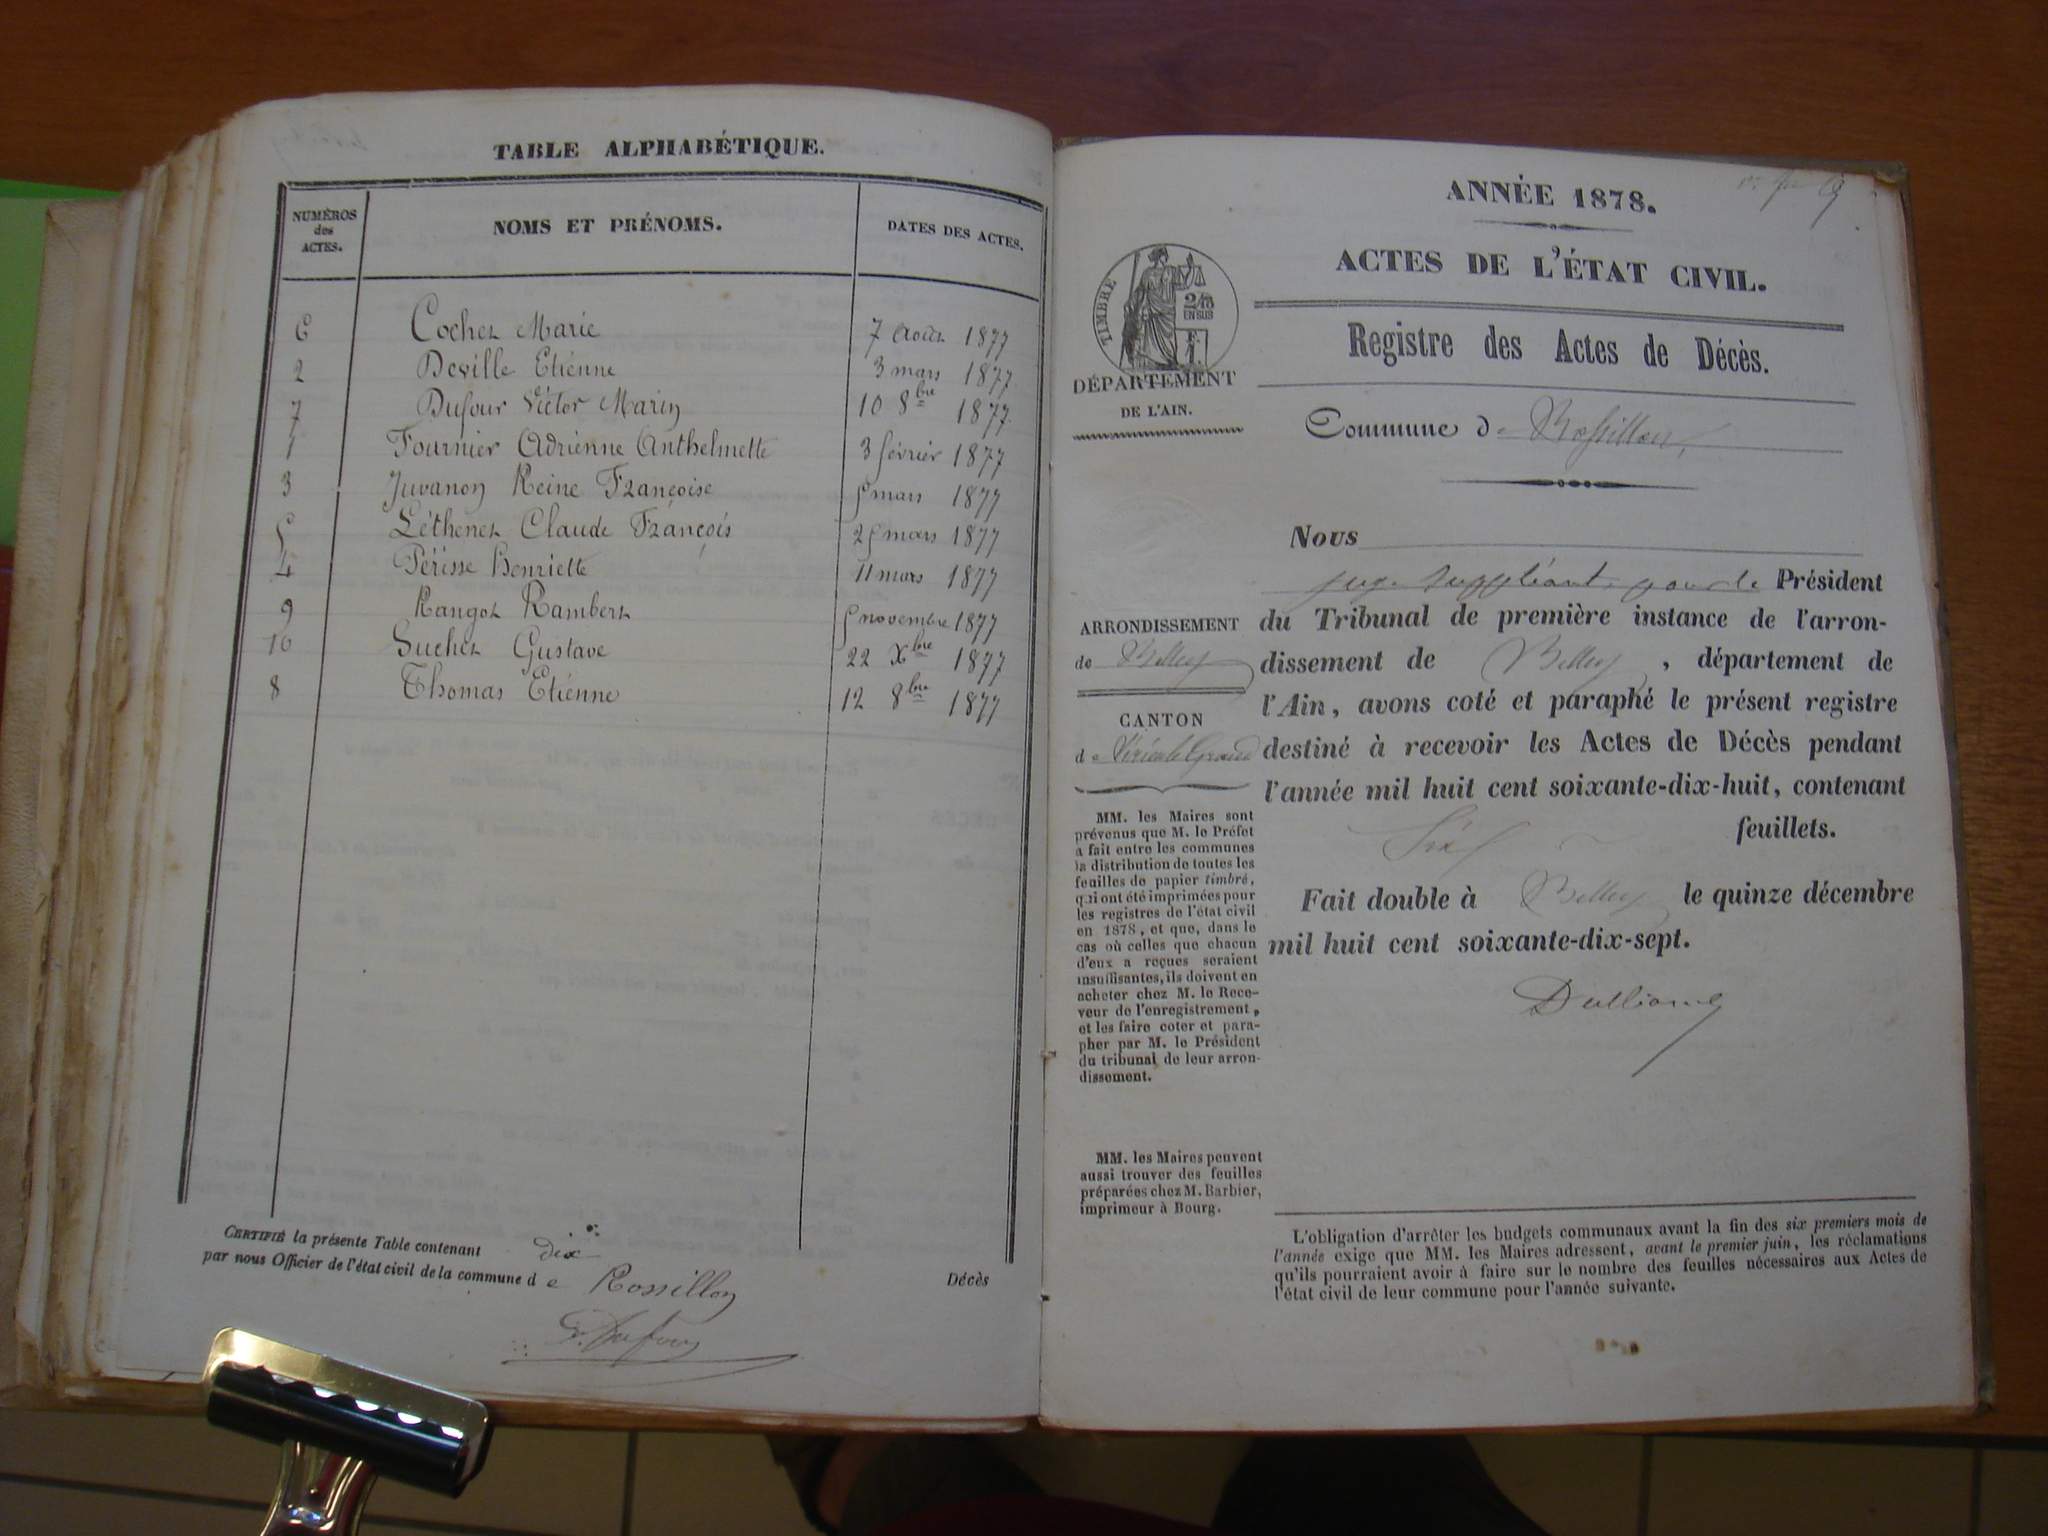 TABLE ALPHABÉTIQUE.
NUMÉROS
des
ACTES.
NOMS ET PRÉNOMS.
DATES DES ACTES.
6 Cochet Marie 7 Août 1877
2 Deville Etienne 3 mars 1877
7 Dufour Victor Marin 10 8bre 1877
1 Fournier Adrienne Anthelmette 3 février 1877
3 Juvanon Reine Françoise 5 mars 1877
5 Léthenet Claude François 25 mars 1877
4 Périsse Henriette 11 mars 1877
9 Rangot Rambert 5 novembre 1877
10 Suchet Gustave 22 Xbre 1877
8 Thomas Etienne 12 8bre 1877
CERTIFIÉ la présente Table contenant dix Décès
par nous Officier de l'état civil de la commune de Rossillon
Dufour
ANNÉE 1878.
ACTES DE L'ÉTAT CIVIL.
Registre des Actes de Décès.
Commune de Rossillon
TIMBRE
2/10
EN SUS
DÉPARTEMENT
DE L'AIN.
ARRONDISSEMENT
de Belley
CANTON
de Virieu le Grand
MM. les Maires sont
prévenus que M. le Préfet
a fait entre les communes
la distribution de toutes les
feuilles de papier timbré,
qui ont été imprimées pour
les registres de l'état civil
en 1878, et que, dans le
cas où celles que chacun
d'eux a reçues seraient
insuffisantes, ils doivent en
acheter chez M. le Rece-
veur de l'enregistrement,
et les faire coter et para-
pher par M. le Président
du tribunal de leur arron-
dissement.
MM. les Maires peuvent
aussi trouver des feuilles
préparées chez M. Barbier,
imprimeur à Bourg.
Nous
juge suppléant pour le Président
du Tribunal de première instance de l'arron-
dissement de Belley, département de
l'Ain, avons coté et paraphé le présent registre
destiné à recevoir les Actes de Décès pendant
l'année mil huit cent soixante-dix-huit, contenant
Six feuillets.
Fait double à Belley le quinze décembre
mil huit cent soixante-dix-sept.
L'obligation d'arrêter les budgets communaux avant la fin des six premiers mois de
l'année exige que MM. les Maires adressent, avant le premier juin, les réclamations
qu'ils pourraient avoir à faire sur le nombre des feuilles nécessaires aux Actes de
l'état civil de leur commune pour l'année suivante.